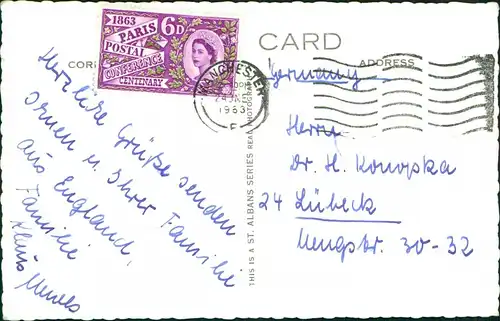 1863
PARIS
POSTAL
CONFERENCE
CENTENARY
6D
CARD
CORR
ADDRESS
MANCHESTER
1963
THIS IS A ST. ALBANS SERIES REAL PHOTOGRAPH
Herzliche Grüße senden
Ihnen u. Ihrer Familie
aus England,
Familie
Klaus
Germany
Herrn
Dr. H. Konopka
24 Lübeck
Mengstr. 30-32